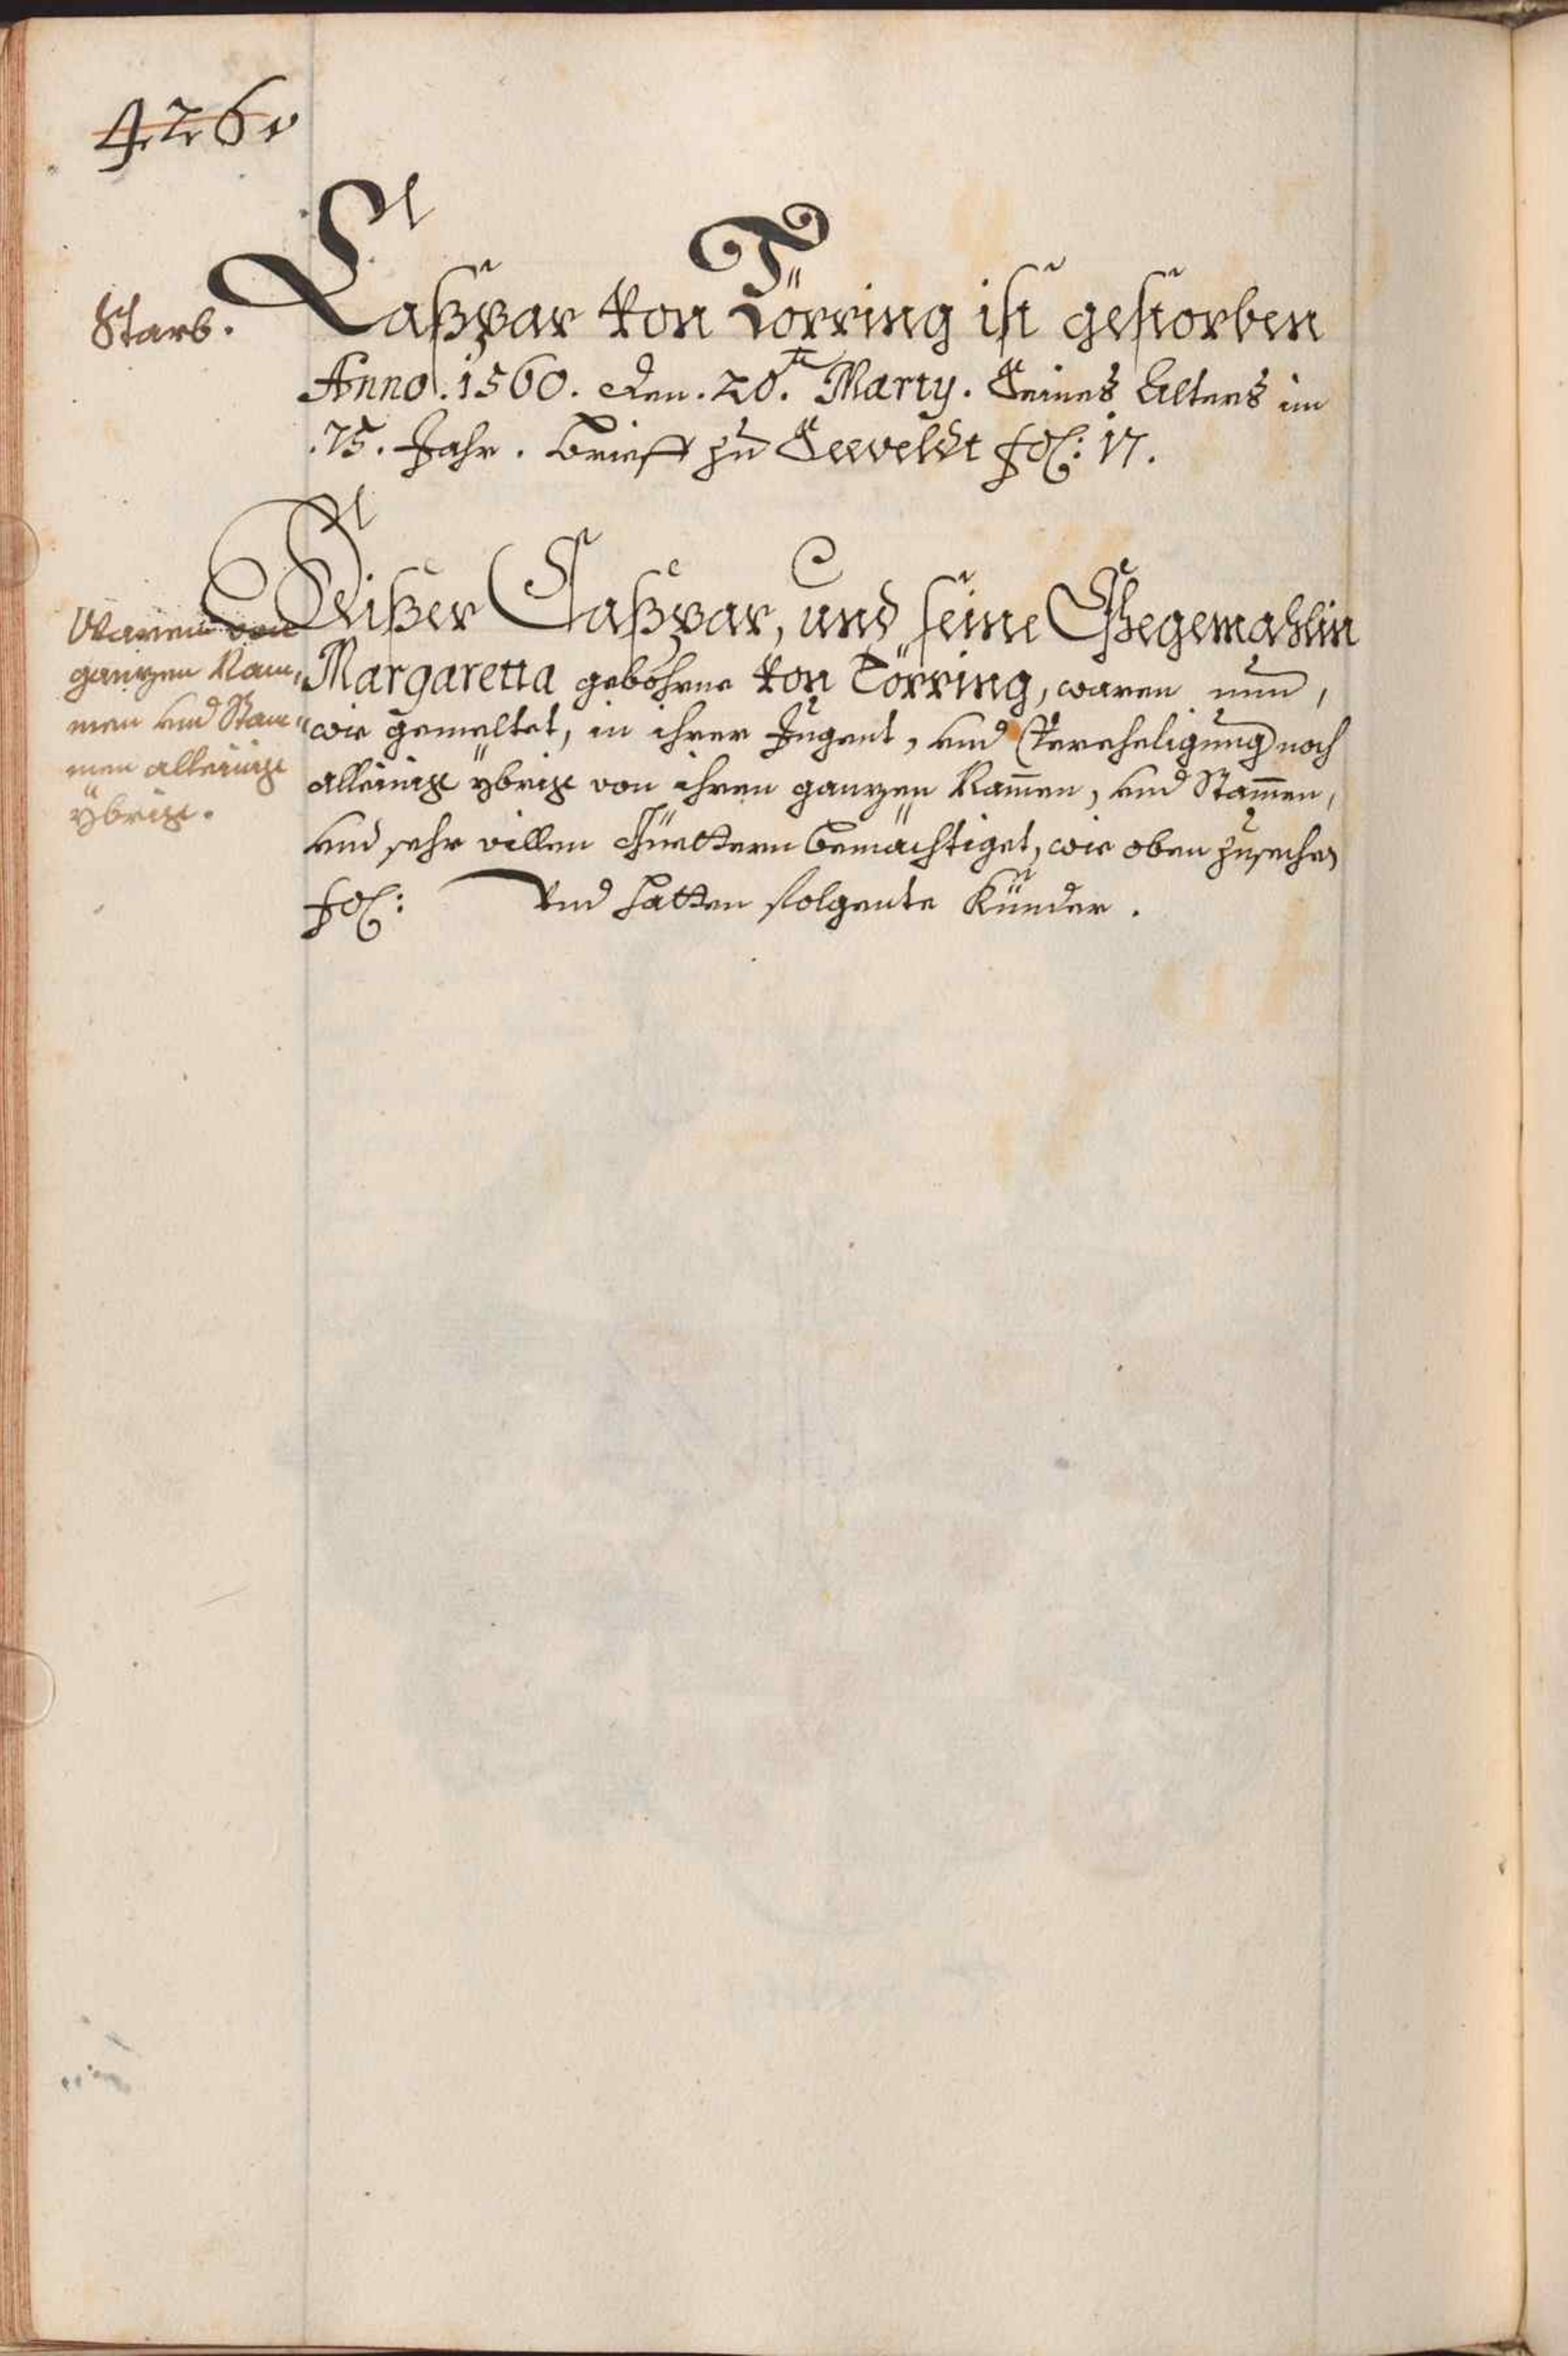 426v
Starb.
Caßpar von Törring ist gestorben
Anno. 1560. den. 20.te Marty. Seines Alters im
.75. Jahr. Brieff zu Seeveldt fol: 17.
Waren von
ganzen Nam„
men und Stam„
men alleinige
ybrige.
Dißer Caßpar, und seine Ehegemahlin
Margaretta gebohrne von Törring, waren nun,
wie gemeltet, in ihrer Jugent, und Vereheligung noch
alleinige ybrige von ihren ganzen Nam̄en, und Stam̄en,
und sehr villen Güettern bemächtiget, wie oben zusechen
fol: Und hatten folgente Künder.